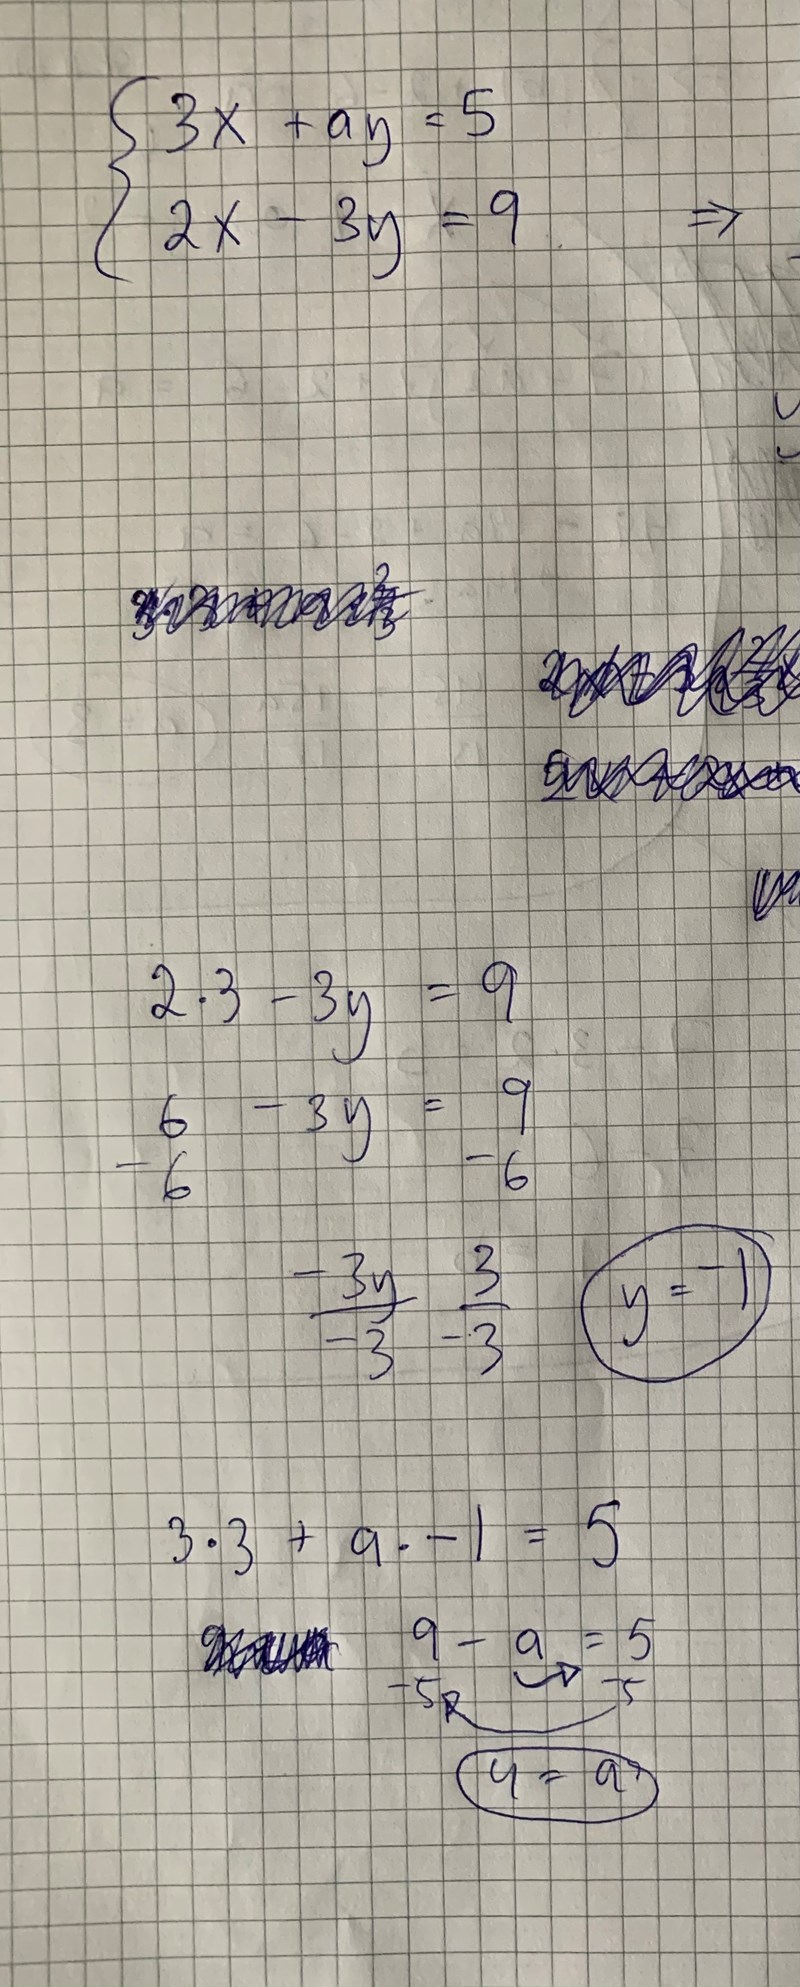 3x + ay = 5
2x - 3y = 9 ⇒
2·3 - 3y = 9
6 - 3y = 9
-6 -6
-3y 3
-3 -3
y = -1
3·3 + a·-1 = 5
9 - a = 5
-5 -5
4 = a